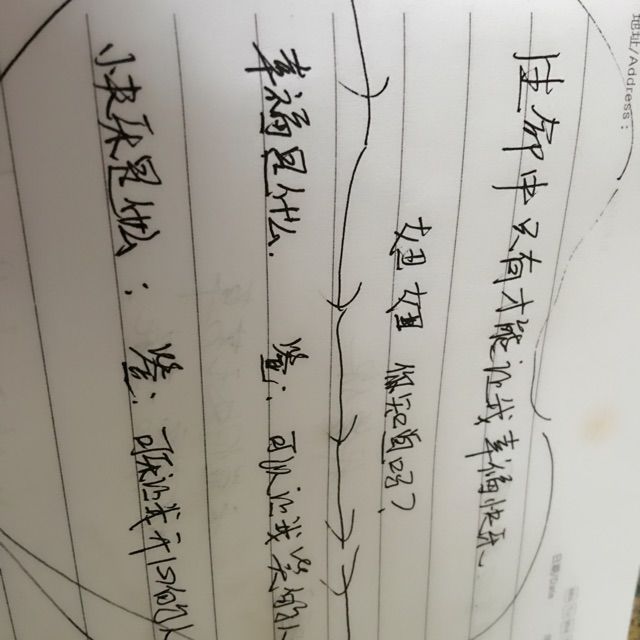 地址/Address：
日期/Date
生命中只有才能让我幸福快乐.
妞妞 你知道吗？
幸福是什么. 答：可以让我笑的人
快乐是什么：答：可以让我开心的人